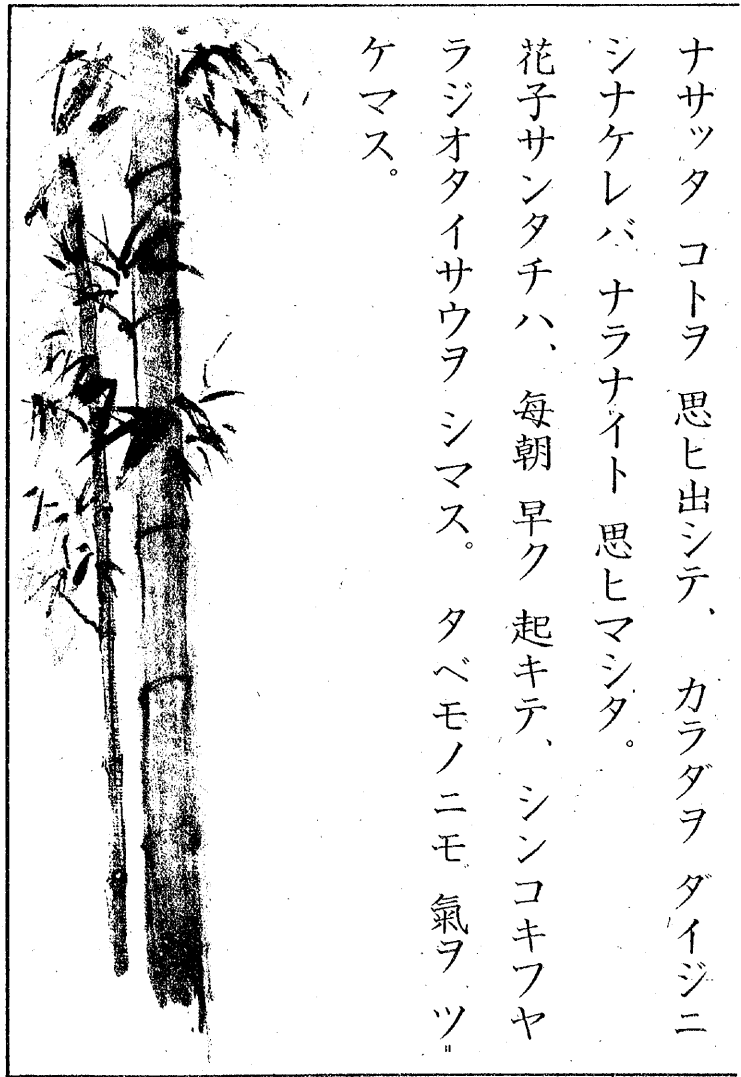 ナサッタ コトヲ 思ヒ出シテ、 カラダヲ ダイジニ
シナケレバ ナラナイト 思ヒマシタ。
花子サンタチハ、 每朝 早ク 起キテ、 シンコキフヤ
ラジオタイサウヲ シマス。 タベモノニモ 氣ヲ ツ
ケマス。